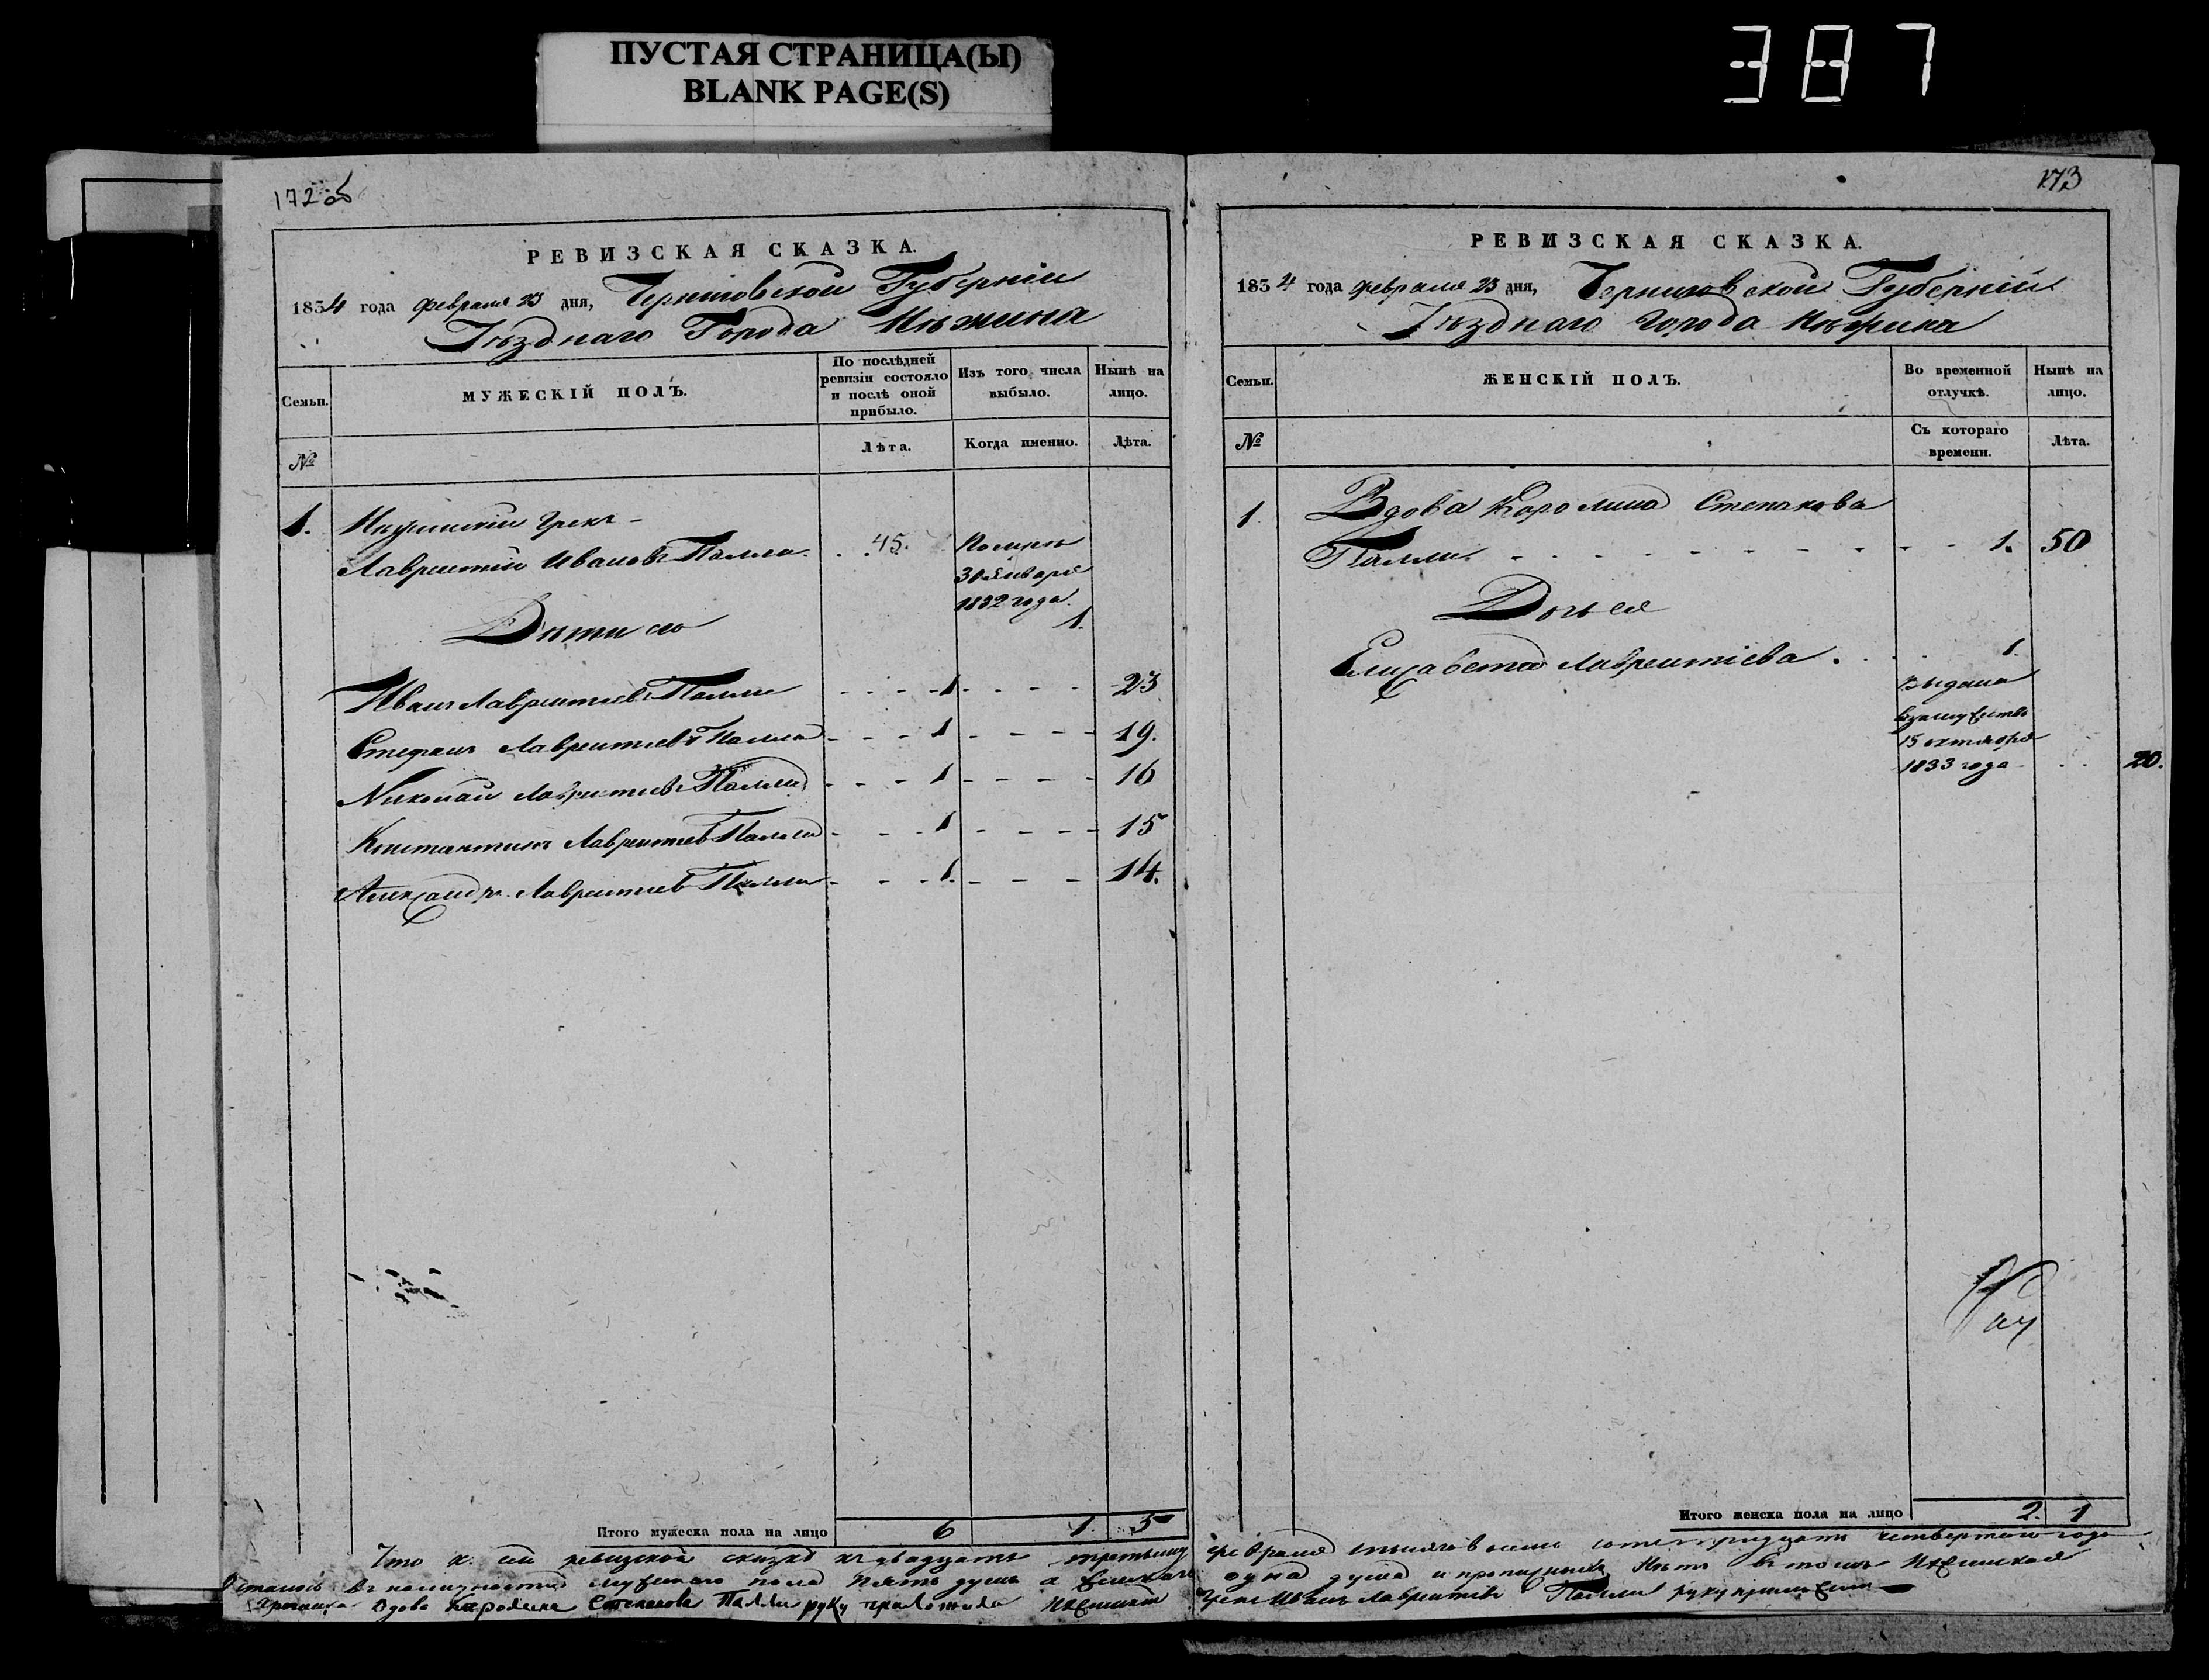 ПУСТАЯ СТРАНИЦА(Ы)
BLANK PAGE(S)
387
172 об
РЕВИЗСКАЯ СКАЗКА.
1834 года февраля 23 дня, Черниговской Губерніи
Уѣзднаго Города Нѣжина
Семьи.
МУЖЕСКІЙ ПОЛЪ.
По послѣдней ревизіи состояло и послѣ оной прибыло.
Изъ того числа выбыло.
Нынѣ на лицо.
№
Лѣта.
Когда именно.
Лѣта.
1. Нѣжинскій Грекъ
Лаврентій Ивановъ Палли . . 45. Помре
30 Января
1832 года.
1.
Дѣти его
Иванъ Лаврентіевъ Палли - - - - 1 - - - - 23
Стефанъ Лаврентіевъ Палли - - - 1 - - - - 19.
Николай Лаврентіевъ Палли - - - 1 - - - - 16
Константинъ Лаврентіевъ Палли - - - 1 - - - - 15
Александръ Лаврентіевъ Палли - - - 1. - - - - 14.
Итого мужеска пола на лицо 6 1. 5
173
РЕВИЗСКАЯ СКАЗКА.
1834 года февраля 23 дня, Черниговской Губерніи
Уѣзднаго Города Нѣжина
Семьи.
ЖЕНСКІЙ ПОЛЪ.
Во временной отлучкѣ.
Нынѣ на лицо.
№
Съ котораго времени.
Лѣта.
1 Вдова Каролина Степанова
Палли - - - - - - - - - - 1. 50
Дочь ея
Елизавета Лаврентіева. . . 1.
Выдана
взамужество
15 октября
1833 года . . 20.
Итого женска пола на лицо 2. 1
Что к сей ревизской сказкѣ къ двадцать третьему февраля тысяча восемь сотъ тридцать четвертаго года
осталось въ наличности мужеска пола пять душъ а женскаго одна душа и прописныхъ нѣтъ въ томъ Нѣжинская
вдова Каролина Степанова Палли руку приложила Нѣжинскій Грекъ Иванъ Лаврентіевъ Палли руку приложилъ